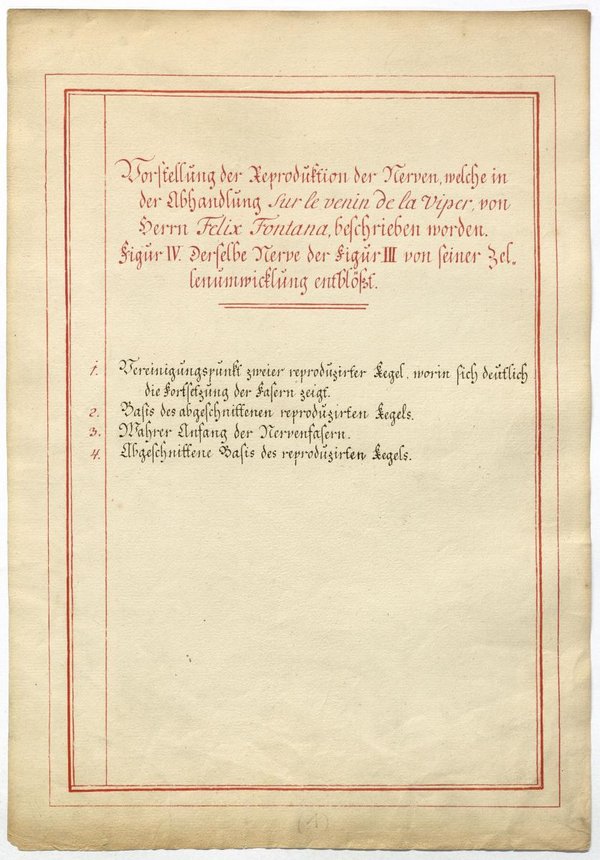 Vorstellung der Reproduktion der Nerven, welche in
der Abhandlung Sur le venin de la Viper, von
Herrn Felix Fontana, beschrieben worden.
Figur IV. Derselbe Nerve der Figur III von seiner Zel-
lenumwicklung entblößt.
1. Vereinigungspunkt zweier reproduzirter Kegel, worin sich deutlich
die Fortsetzung der Fasern zeigt.
2. Basis des abgeschnittenen reproduzirten Kegels.
3. Wahrer Anfang der Nervenfasern.
4. Abgeschnittene Basis des reproduzirten Kegels.